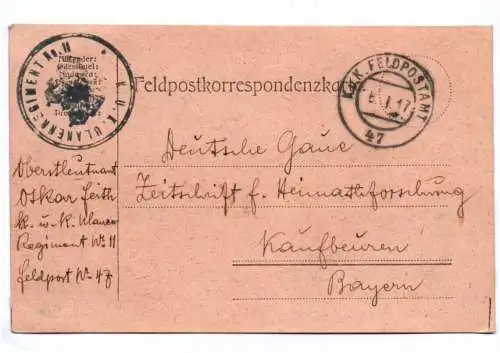 K. U. K. ULANENREGIMENT No. 11
Absender:
Feldpostkorrespondenzka
K.u.K. FELDPOSTAMT
6. I. 17
47
Oberstleutnant
Oskar Feith
k. u. K. Ulanen
Regiment No 11
Feldpost No 47
Deutsche Gaue
Zeitschrift f. Heimathforschung
Kaufbeuren
Bayern